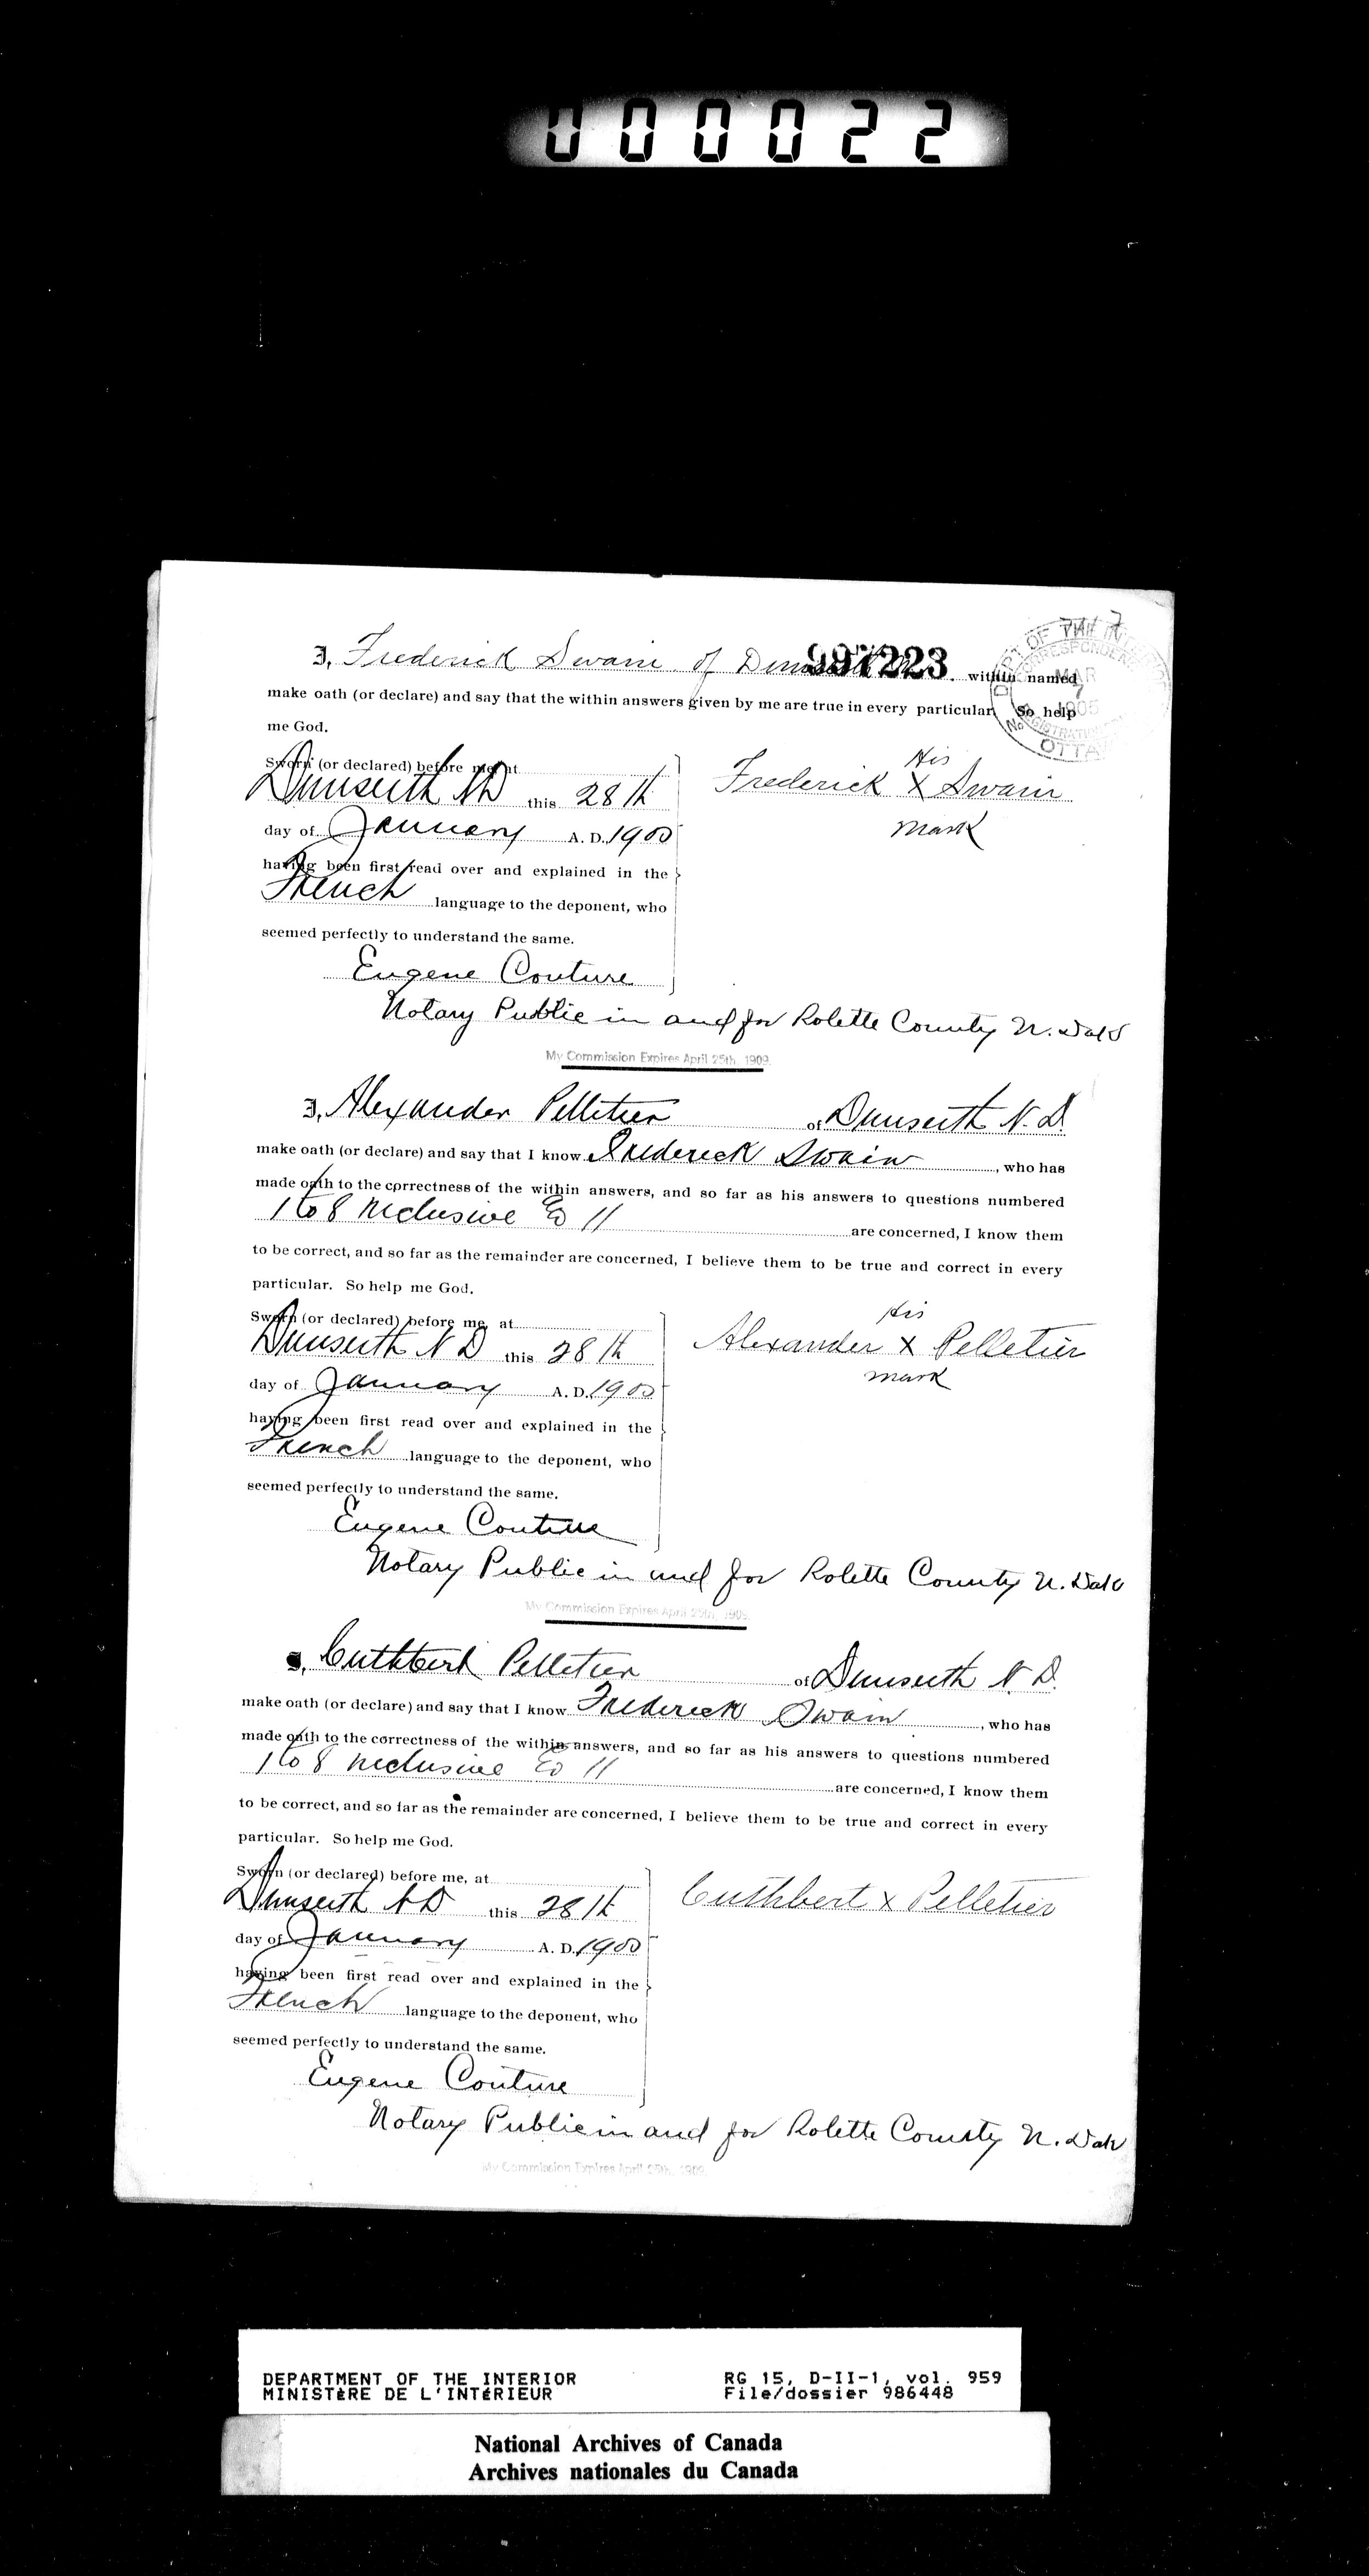 000022
997223
DEPT OF THE INTERIOR
CORRESPONDENCE
MAR
7
1905
REGISTRATION
No
OTTAWA
I, Frederick Swain of within named
make oath (or declare) and say that the within answers given by me are true in every particular. So help
me God.
Sworn (or declared) before me, at
Dunseith ND this 28th
day of January A. D. 1905
having been first read over and explained in the
French language to the deponent, who
seemed perfectly to understand the same.
Eugene Couture
Notary Public in and for Rolette County N. Dak
My Commission Expires April 25th, 1909.
His
Frederick X Swain
mark
I, Alexander Pelletier of Dunseith N. D.
make oath (or declare) and say that I know Frederick Swain, who has
made oath to the correctness of the within answers, and so far as his answers to questions numbered
1 to 8 inclusive & 11 are concerned, I know them
to be correct, and so far as the remainder are concerned, I believe them to be true and correct in every
particular. So help me God.
Sworn (or declared) before me, at
Dunseith N D this 28th
day of January A. D. 1905
having been first read over and explained in the
French language to the deponent, who
seemed perfectly to understand the same.
Eugene Couture
Notary Public in and for Rolette County N. Dak
My Commission Expires April 25th, 1909.
His
Alexander X Pelletier
mark
I, Cuthbert Pelletier of Dunseith N. D.
make oath (or declare) and say that I know Frederick Swain, who has
made oath to the correctness of the within answers, and so far as his answers to questions numbered
1 to 8 inclusive & 11 are concerned, I know them
to be correct, and so far as the remainder are concerned, I believe them to be true and correct in every
particular. So help me God.
Sworn (or declared) before me, at
Dunseith ND this 28th
day of January A. D. 1905
having been first read over and explained in the
French language to the deponent, who
seemed perfectly to understand the same.
Eugene Couture
Notary Public in and for Rolette County N. Dak
My Commission Expires April 25th, 1909.
Cuthbert x Pelletier
DEPARTMENT OF THE INTERIOR
MINISTÈRE DE L'INTÉRIEUR
RG 15, D-II-1, vol. 959
File/dossier 986448
National Archives of Canada
Archives nationales du Canada